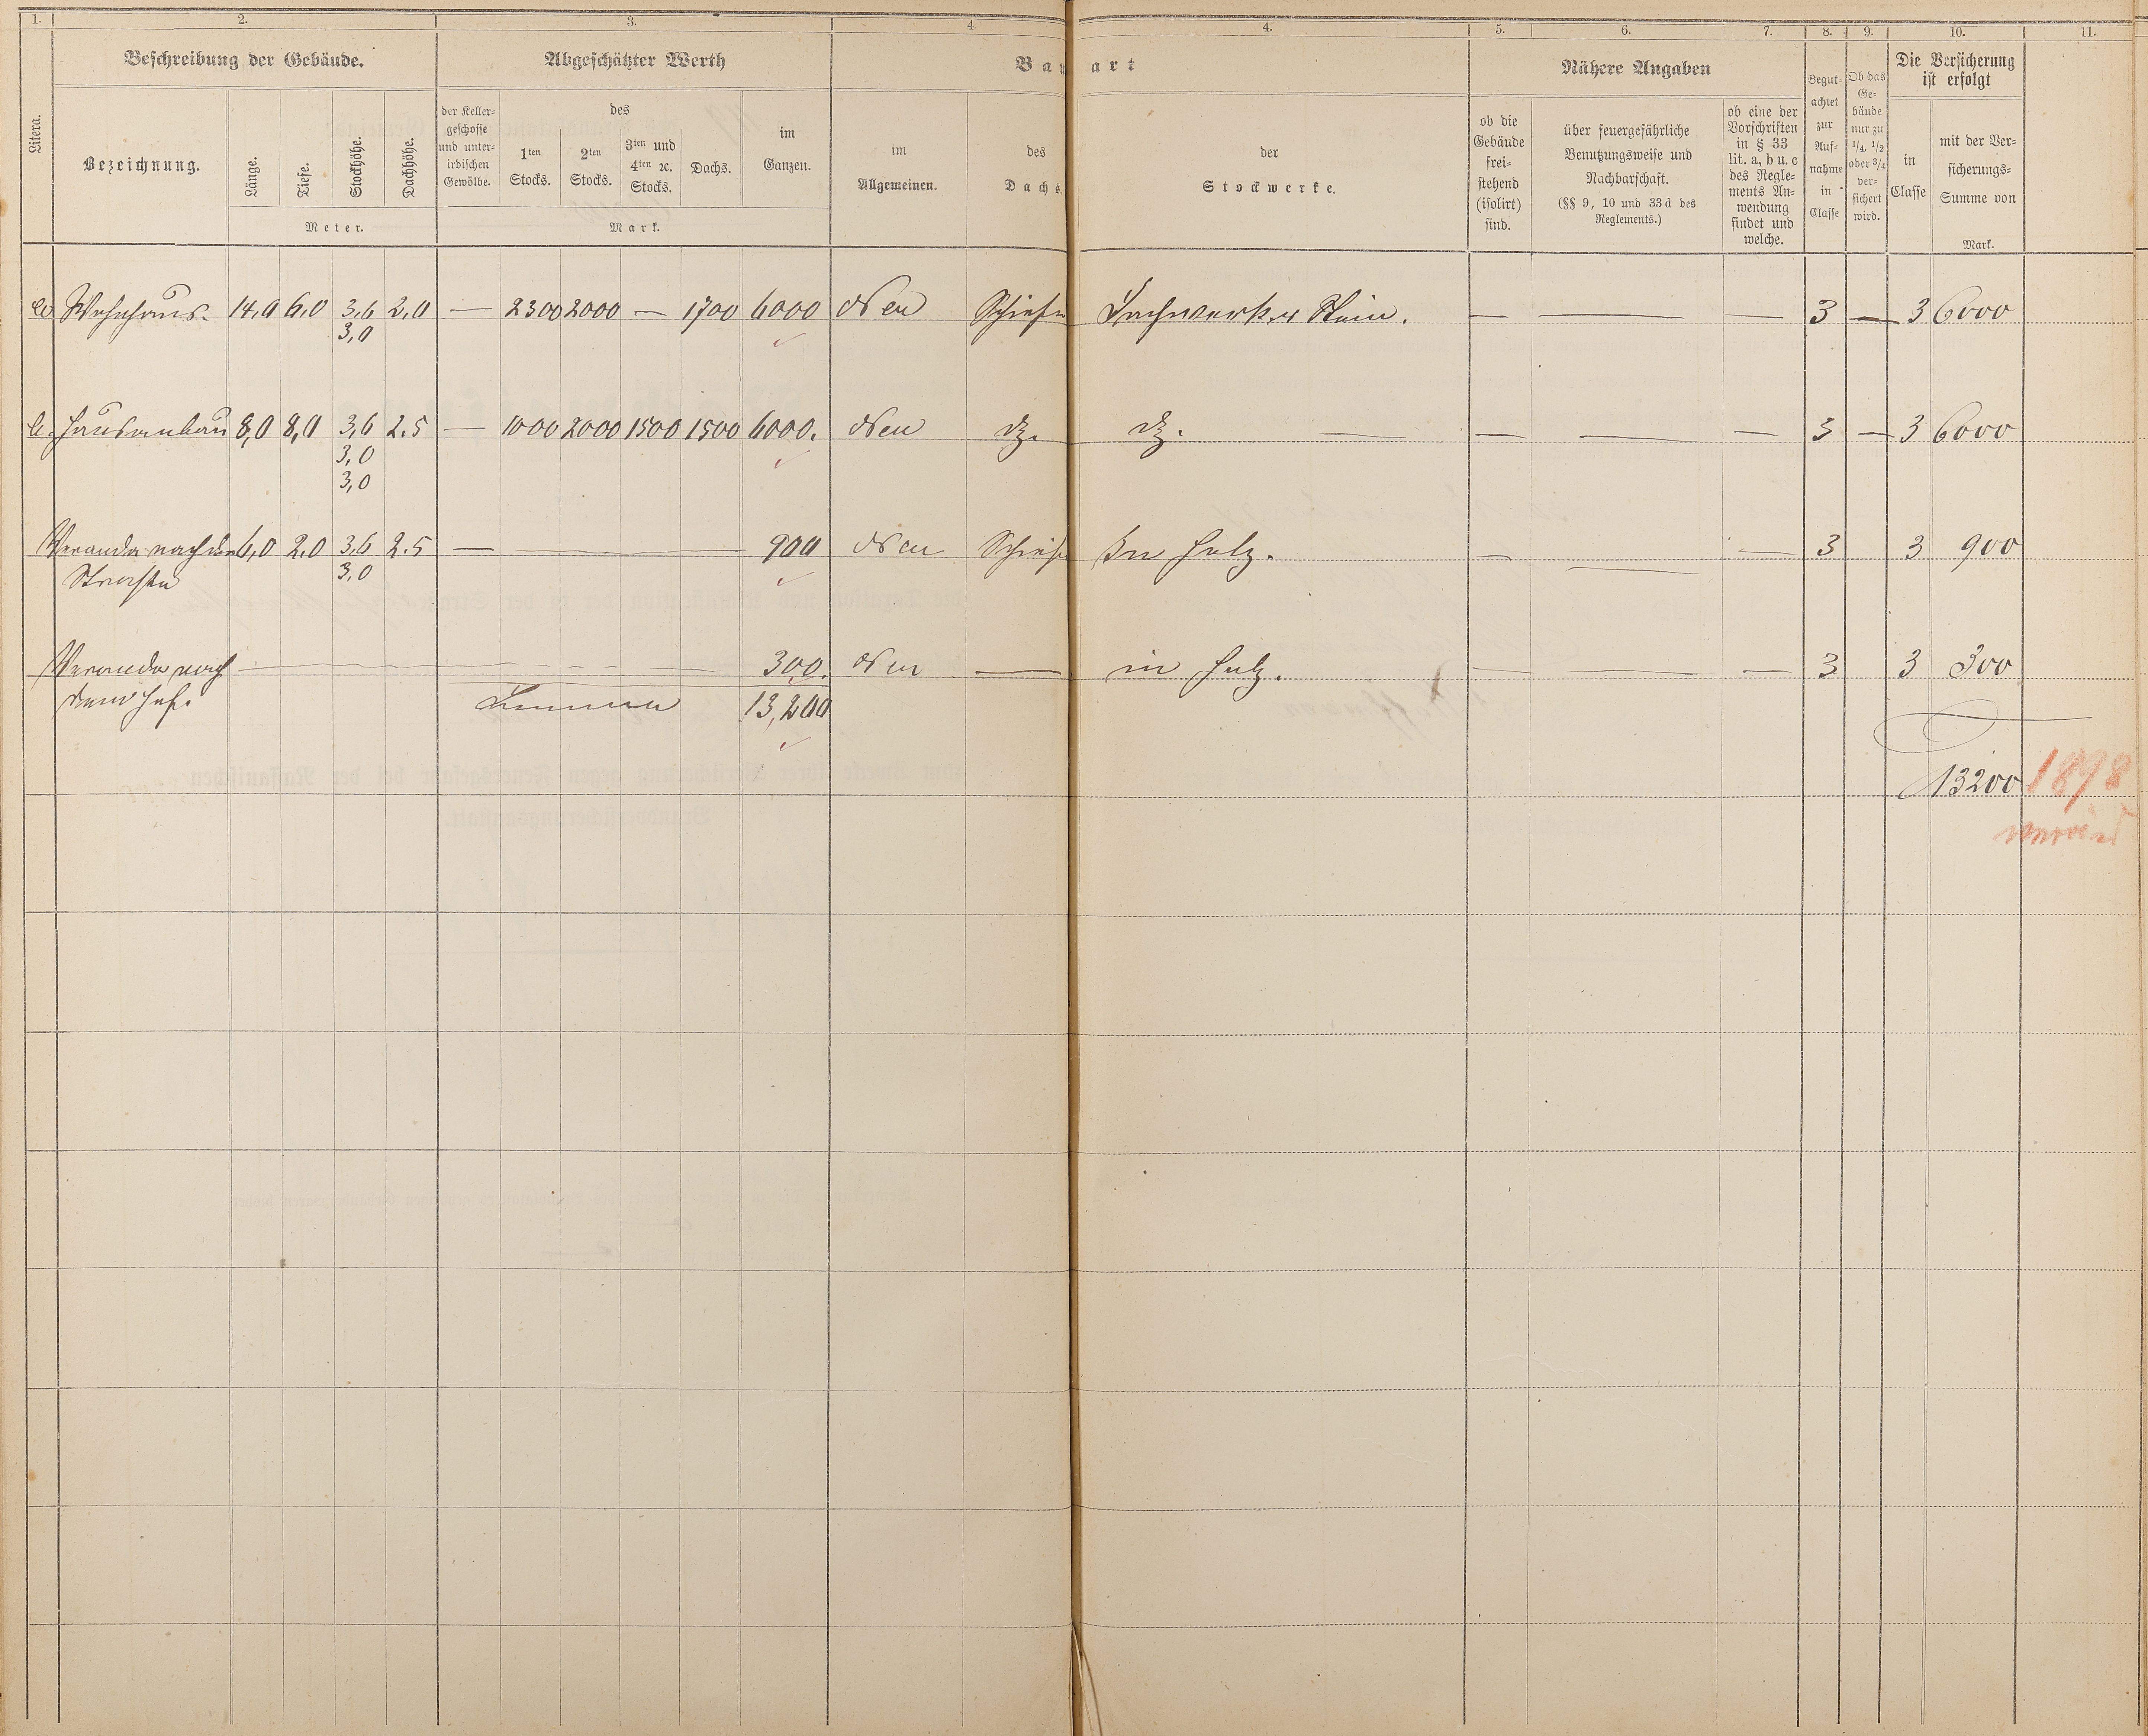 1. 2. 3. 4 4. 5. 6. 7. 8. 9. 10. 11.
Beschreibung der Gebäude. Abgeschätzter Werth Bau art Nähere Angaben
Die Versicherung
ist erfolgt
Litera.
Bezeichnung.
Länge.
Tiefe.
Stockhöhe.
Dachhöhe.
Meter.
der Keller-
geschosse
und unter-
irdischen
Gewölbe.
des
1ten
Stocks.
2ten
Stocks.
3ten und
4ten ꝛc.
Stocks.
Dachs.
im
Ganzen.
Mark.
im
Allgemeinen.
des
Dachs.
der
Stockwerke.
ob die
Gebäude
frei-
stehend
(isolirt)
sind.
über feuergefährliche
Benutzungsweise und
Nachbarschaft.
(§§ 9, 10 und 33 d des
Reglements.)
ob eine der
Vorschriften
in § 33
lit. a, b u. c
des Regle-
ments An-
wendung
findet und
welche.
Begut-
achtet
zur
Auf-
nahme
in
Classe
Ob das
Ge-
bäude
nur zu
1/4, 1/2
oder 3/4
ver-
sichert
wird.
in
Classe
mit der Ver-
sicherungs-
Summe von
Mark.
a Wohnhaus. 14,0 6,0 3,6 2,0 — 2300 2000 — 1700 6000 Neu Schiefer Fachwerk u Stein. — — — 3 — 3 6000
3,0
b. Hausanbau 8,0 8,0 3,6 2.5 — 1000 2000 1500 1500 6000. Neu do. do. — — — — 3 — 3 6000
3,0
3,0
Veranda nach der 6,0 2.0 3,6 2.5 — 900 Neu Schiefer In Holz. — — — 3 3 900
Straße 3,0
Veranda nach — 300. Neu — in Holz. — — — 3 3 300
dem Hof. Summa 13,200
13200 1898